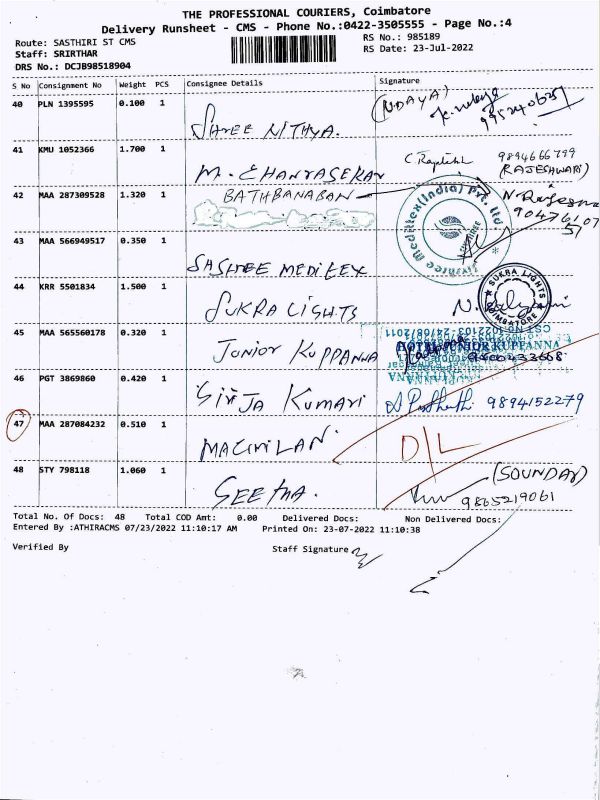 THE PROFESSIONAL COURIERS, Coimbatore
Delivery Runsheet - CMS - Phone No.:0422-3505555 - Page No.:4
Route: SASTHIRI ST CMS RS No.: 985189
Staff: SRIRTHAR RS Date: 23-Jul-2022
DRS No.: DCJB98518904
S No Consignment No Weight PCS Consignee Details Signature
40 PLN 1395595 0.100 1 SHREE NITHYA. (UDAYA)
41 KMU 1052366 1.700 1 M. CHANRASEKAR 9894666799
(RAJESHWARI)
42 MAA 287309528 1.320 1 BATHBANABAN
43 MAA 566949517 0.350 1 SASHREE MEDITEX
44 KRR 5501834 1.500 1 SUKRA LIGHTS
SUKRA LIGHTS
COIMBATORE
45 MAA 565560178 0.320 1 JUNIOR KUPPANNA
HOTEL JUNIOR KUPPANNA
46 PGT 3869860 0.420 1 GIRIJA KUMARI 9894152279
47 MAA 287084232 0.510 1 MACIMILAN. D/L
48 STY 798118 1.060 1 GEETHA. (SOUNDAR)
9865219061
Total No. Of Docs: 48 Total COD Amt: 0.00 Delivered Docs: Non Delivered Docs:
Entered By :ATHIRACMS 07/23/2022 11:10:17 AM Printed On: 23-07-2022 11:10:38
Verified By Staff Signature